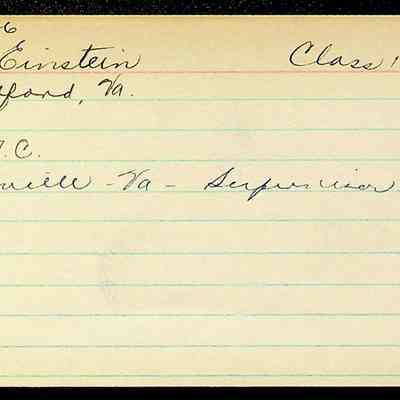 6
Einstein Class 1
ford, Va.
.C.
ville - Va - Supervisor